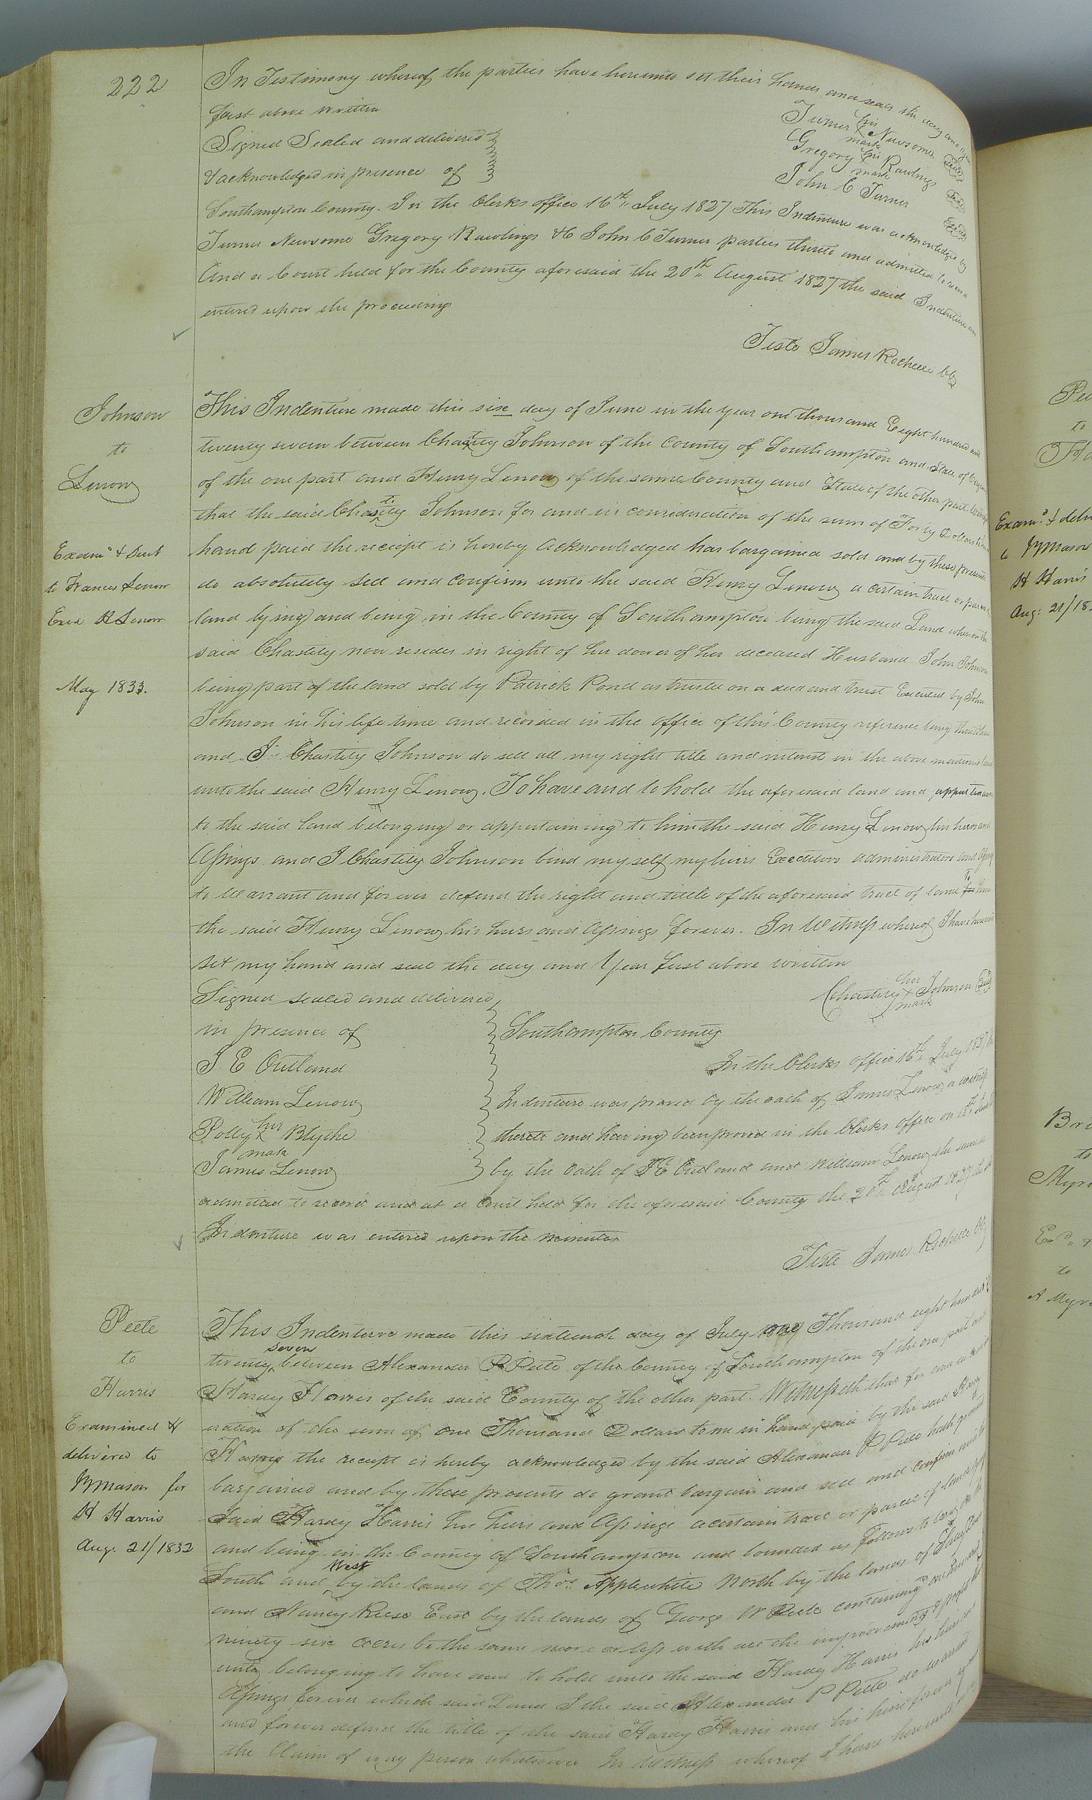 222
In Testimony whereof the parties have hereunto set their hands and seals the day and year
first above written
Turner his Newsome Seal
mark
Signed Sealed and delivered
Gregory his Rawlings Seal
mark
& acknowledged in presence of
John C Turner Seal
Southampton County. In the Clerks office 16th July 1827 This Indenture was acknowledged by
Turner Newsome Gregory Rawlings & John C Turner parties thereto and admitted to record
And a Court held for the County aforesaid the 20th August 1827 the said Indenture was
entered upon the proceeding
Teste James Rochelle CC
Johnson
to
Lenow
Examd & Delt
to Frances Lenow
Exr H Lenow
May 1833.
This Indenture made this six day of June in the year one thousand Eight hundred and
twenty seven between Chastity Johnson of the County of Southampton and State of Virginia
of the one part and Henry Lenow of the same County and State of the other part
that the said Chastity Johnson for and in consideration of the sum of Forty Dollars to me in
hand paid the receipt is hereby acknowledged has bargained sold and by these presents
do absolutely sell and confirm unto the said Henry Lenow a certain tract or parcel of
land lying and being in the County of Southampton being the said Land whereon the
said Chastity now resides in right of her dower of her deceased Husband John Johnson
being part of the land sold by Patrick Pond as trustee on a deed and trust Executed by John
Johnson in his life time and recorded in the office of this County reference being thereto had
and I Chastity Johnson do sell all my right title and interest in the above mentioned land
unto the said Henry Lenow. To have and to hold the aforesaid land and appurtenances
to the said land belonging or appertaining to him the said Henry Lenow his heirs and
Assings and I Chastity Johnson bind myself my heirs Executors administrators and Assings
to warrant and forever defend the right and tittle of the aforesaid tract of land to him
the said Henry Lenow his heirs and Assings forever. In Witness whereof I have hereunto
set my hand and seal the day and year first above written
Chastity her Johnson Seal
mark
Signed sealed and delivered
in presence of
Southampton County
J E Outland
In the Clerks office 16th July 1827 this
William Lenow
Indenture was proved by the oath of James Lenow a witness
Polly her Blythe
mark
thereto and having been proved in the Clerks office on
James Lenow
by the oath of J E Outland and William Lenow the same is
admitted to record and at a Court held for the aforesaid County the 20th August 1827 the
Indenture was entered upon the minutes
Teste James Rochelle CC
Peete
to
Harris
Examined &
delivered to
JMason for
H Harris
Aug. 21/1832
This Indenture made this sixteenth day of July one Thousand eight hundred &
twenty seven between Alexander P Peete of the County of Southampton of the one part and
Hardy Harris of the said County of the other part. Witnesseth that for and in consid
eration of the sum of One Thousand Dollars to me in hand paid by the said Hardy
Harris the receipt is hereby acknowledged by the said Alexander P Peete hath granted
bargained and by these presents do grant bargain and sell and confirm unto the
Said Hardy Harris his heirs and Assings a certain tract or parcel of land lying
and being in the County of Southampton and bounded as follows to wit, on the
South and West by the lands of Thos. Applewhite North by the lands of
and Nancy Reese East by the lands of George W Peete containing one hundred
ninety six acres be the same more or less with all the improvements
unto belonging to have and to hold unto the said Hardy Harris his heirs and
Assings forever which said Land I the said Alexander P Peete do warrant
and forever defend the title of the said Hardy Harris and his heirs forever against
the Claim of any person whatsoever In Witness whereof I have hereunto
Examd & deliv
to JMason
H Harris
Aug: 21/18
to
to
Myri
to
A Myri